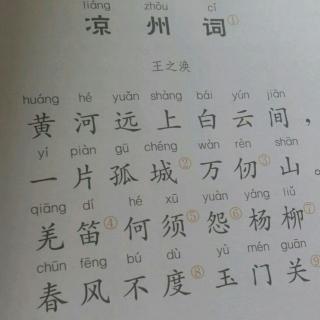 liáng zhōu cí
凉州词①
王之涣
huáng hé yuǎn shàng bái yún jiān
黄河远上白云间，
yí piàn gū chéng wàn rèn shān
一片孤城②万仞③山。
qiāng dí hé xū yuàn yáng liǔ
羌笛④何须⑤怨⑥杨柳⑦
chūn fēng bú dù yù mén guān
春风不度⑧玉门关⑨